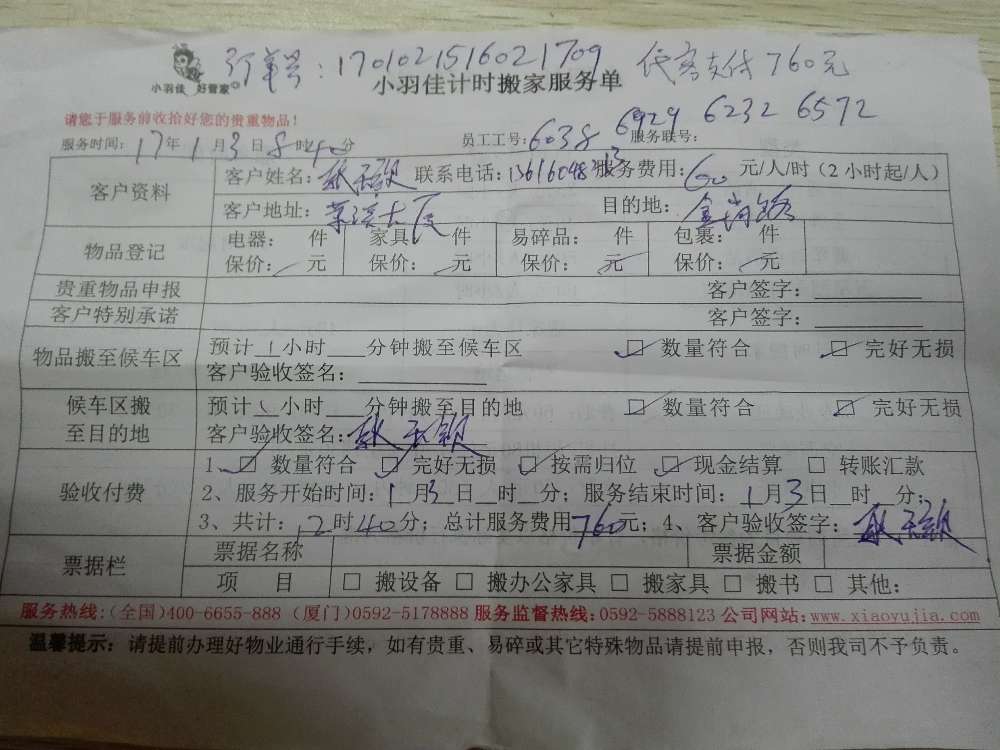 订单号：1701021516021709 代客支付760元
小羽佳 好管家 小羽佳计时搬家服务单
请您于服务前收拾好您的贵重物品！ 6929 6232 6572
服务时间：17年1月3日8时40分 员工工号：6038 服务联号：
客户资料 客户姓名： 联系电话： 服务费用：60元/人/时（2小时起/人）
客户地址： 大厦 目的地：金尚路
物品登记 电器： 件 家具： 件 易碎品： 件 包裹： 件
保价： 元 保价： 元 保价： 元 保价： 元
贵重物品申报 客户签字：
客户特别承诺 客户签字：
物品搬至候车区 预计1小时 分钟搬至候车区 ☑ 数量符合 ☑ 完好无损
客户验收签名：
候车区搬至目的地 预计1小时 分钟搬至目的地 ☑ 数量符合 ☑ 完好无损
客户验收签名：
验收付费 1、☑ 数量符合 ☑ 完好无损 ☑ 按需归位 ☑ 现金结算 □ 转账汇款
2、服务开始时间：1月3日 时 分；服务结束时间：1月3日 时 分；
3、共计：12时40分；总计服务费用760元；4、客户验收签字：
票据栏 票据名称 票据金额
项 目 □ 搬设备 □ 搬办公家具 □ 搬家具 □ 搬书 □ 其他：
服务热线：(全国)400-6655-888 (厦门)0592-5178888 服务监督热线：0592-5888123 公司网站：www.xiaoyujia.com
温馨提示：请提前办理好物业通行手续，如有贵重、易碎或其它特殊物品请提前申报，否则我司不予负责。